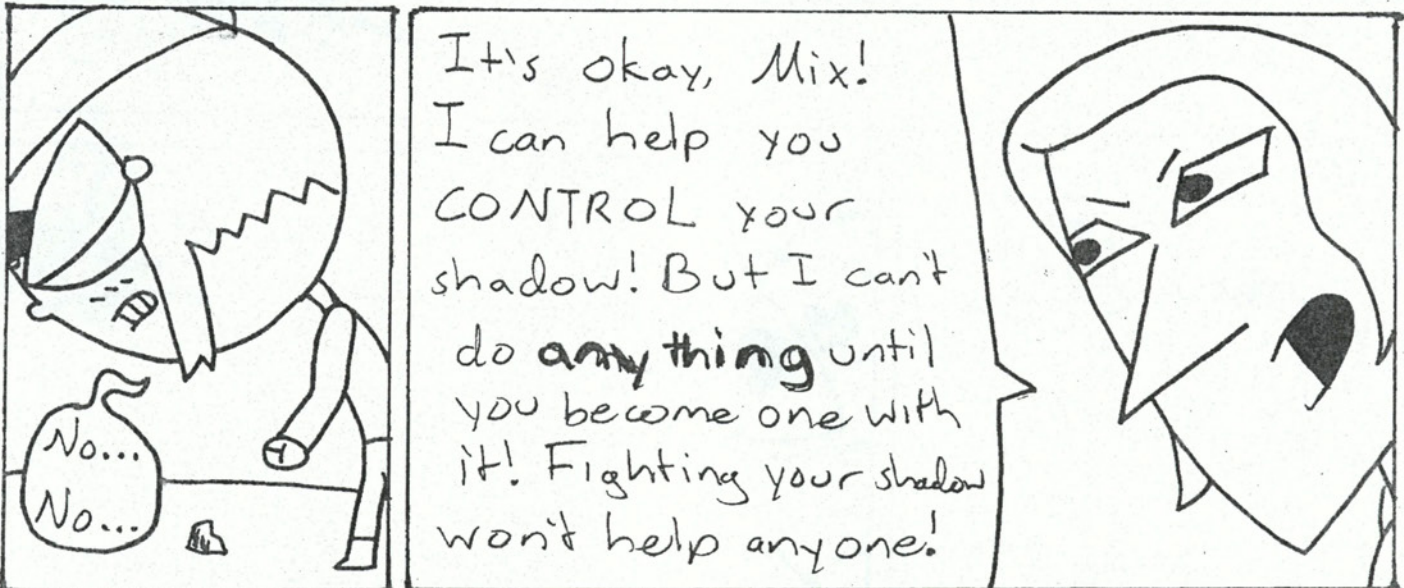 No...
No...
It's okay, Mix!
I can help you
CONTROL your
shadow! But I can't
do anything until
you become one with
it! Fighting your shadow
won't help anyone!